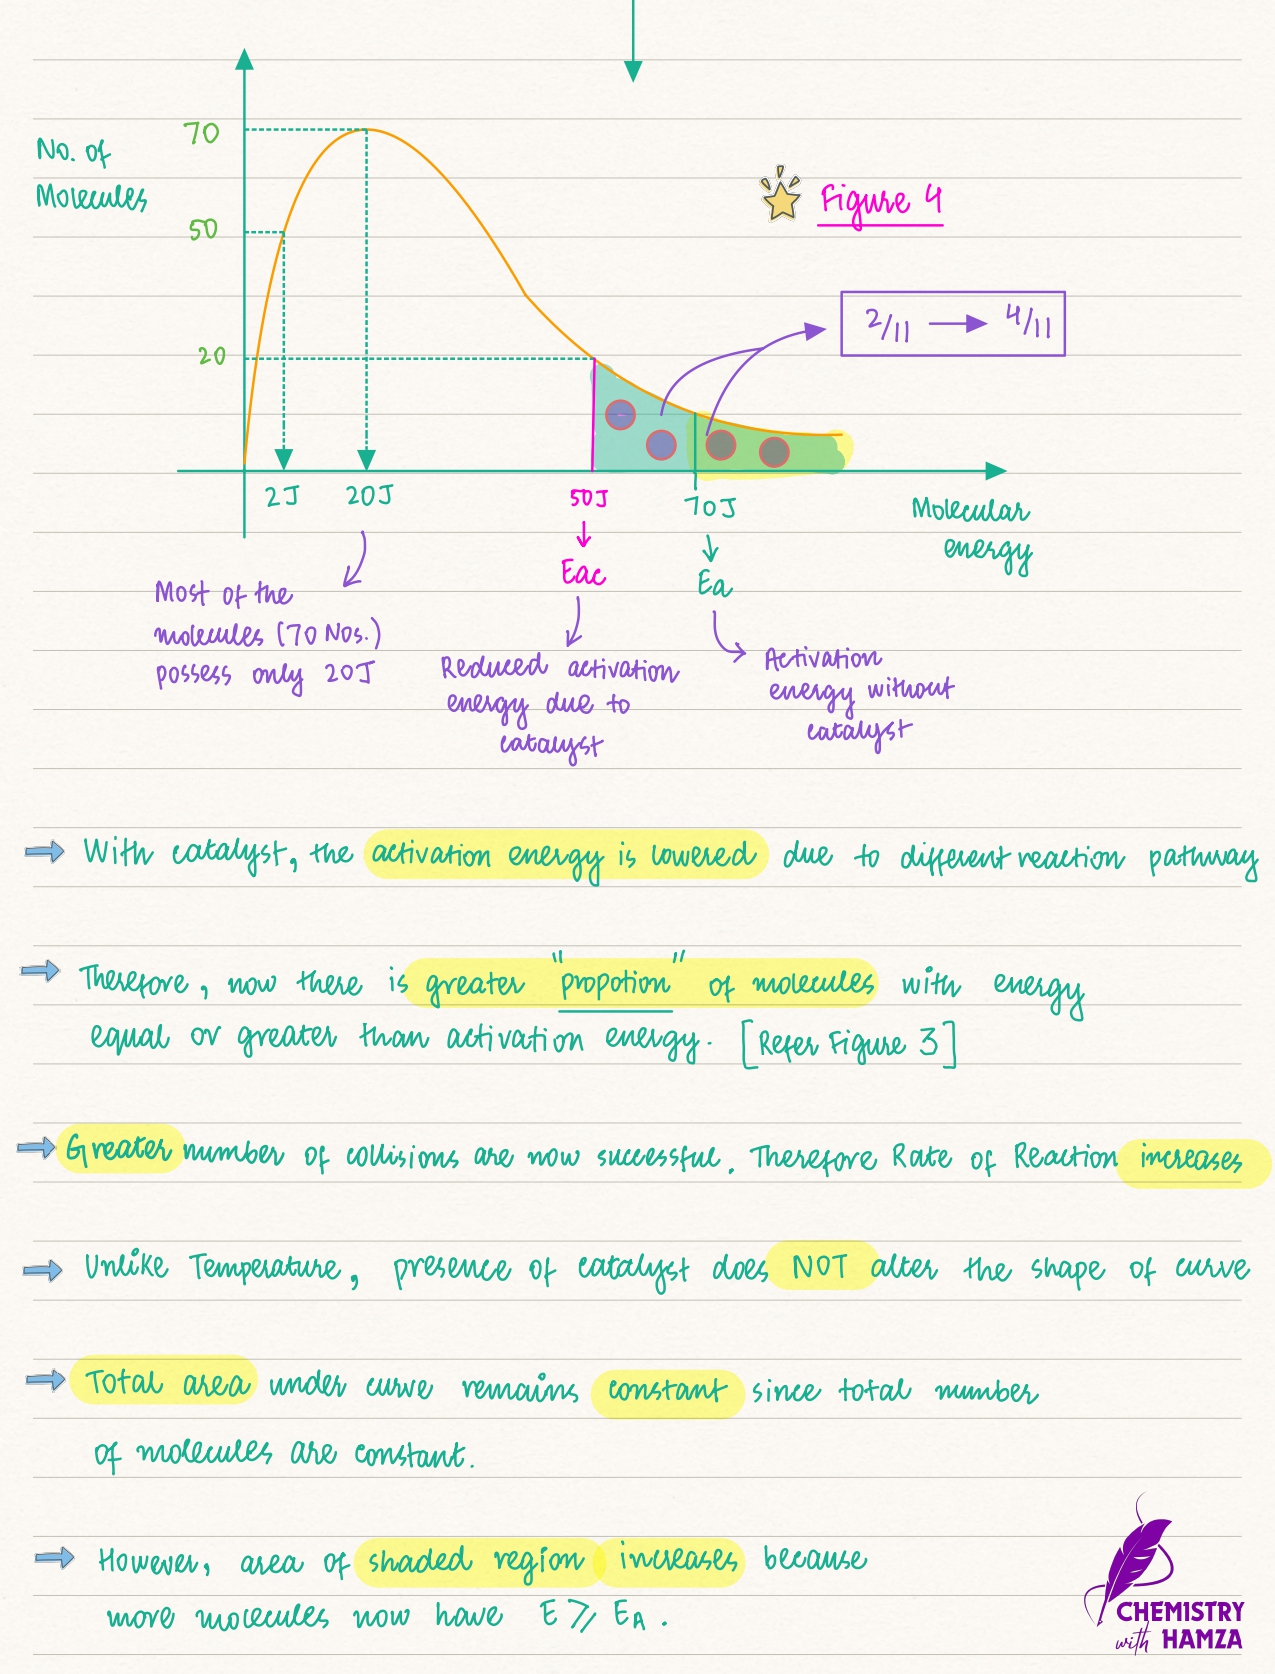 70
No. of
Molecules
50
20
Figure 4
2/11 → 4/11
2J
20J
50J
70J
Molecular
energy
Eac
Ea
Most of the
molecules (70 Nos.)
possess only 20J
Reduced activation
energy due to
catalyst
Activation
energy without
catalyst
With catalyst, the activation energy is lowered due to different reaction pathway
Therefore, now there is greater "propotion" of molecules with energy
equal or greater than activation energy. [Refer Figure 3]
Greater number of collisions are now successful. Therefore Rate of Reaction increases
Unlike Temperature, presence of catalyst does NOT alter the shape of curve
Total area under curve remains constant since total number
of molecules are constant.
However, area of shaded region increases because
more molecules now have E ⩾ EA.
CHEMISTRY
with HAMZA